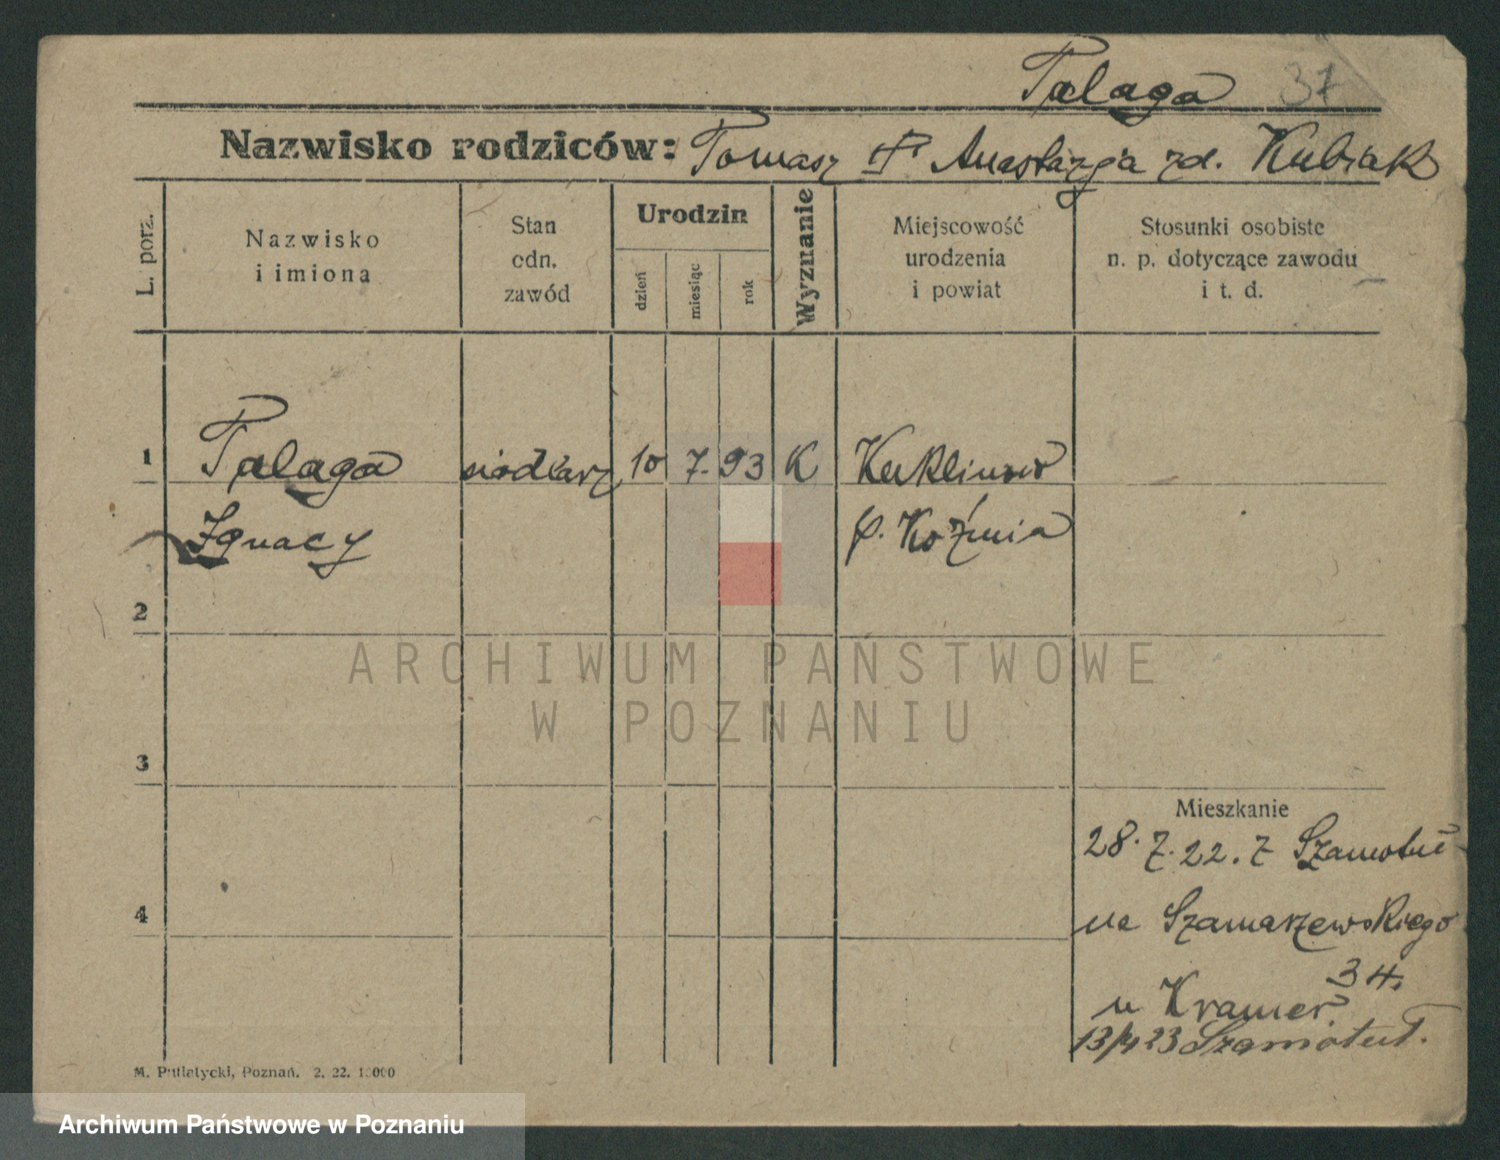 Talaga 37
Nazwisko rodziców: Tomasz i Anastazja zd. Kubiak
L. porz.
Nazwisko
i imiona
Stan
cdn.
zawód
Urodzin
dzień
miesiąc
rok
Wyznanie
Miejscowość
urodzenia
i powiat
Stosunki osobiste
n. p. dotyczące zawodu
i t. d.
1 Talaga siodlarz 10 7. 93 K Kuklinow
Ignacy p. Koźmin
2
3
4
ARCHIWUM PAŃSTWOWE
W POZNANIU
Mieszkanie
28. 7. 22. z Szamotuł
na Szamarzewskiego
34.
u Kramer
13/4 23 Szamotuł.
M. Putiatycki, Poznań. 2. 22. 10000
Archiwum Państwowe w Poznaniu